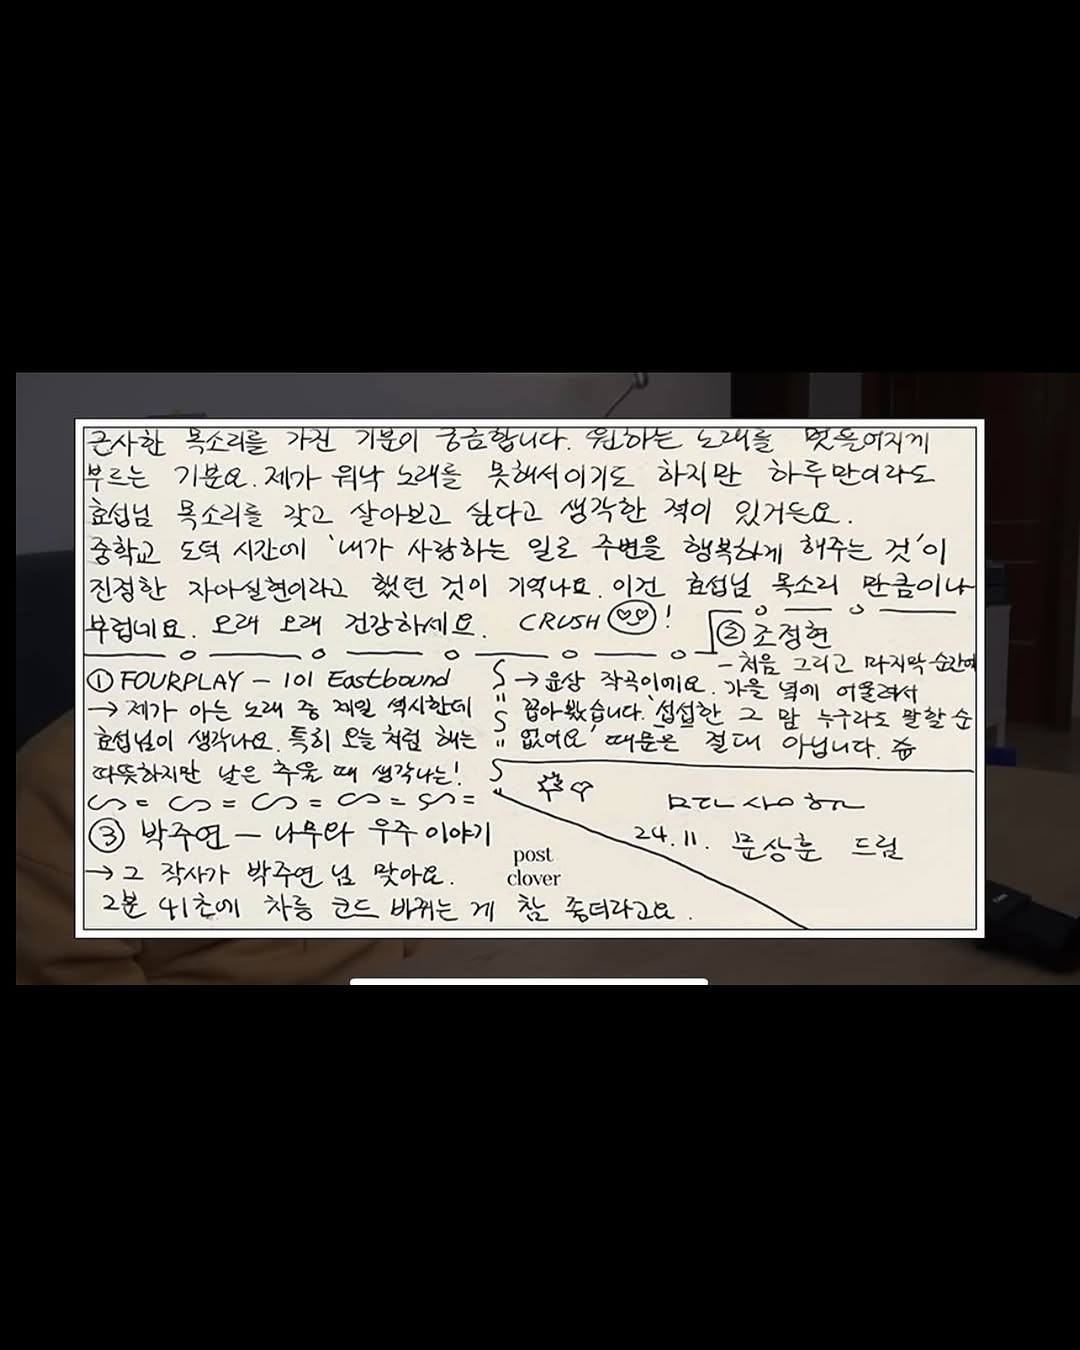 근사한 목소리를 가진 기분이 궁금합니다. 원하는 노래를 멋들어지게
부르는 기분요. 제가 워낙 노래를 못해서이기도 하지만 하루만이라도
효섭님 목소리를 갖고 살아보고 싶다고 생각한 적이 있거든요.
중학교 도덕 시간에 '내가 사랑하는 일로 주변을 행복하게 해주는 것'이
진정한 자아실현이라고 했던 것이 기억나요. 이건 효섭님 목소리 만큼이나
부럽네요. 오래 오래 건강하세요. CRUSH !
① FOURPLAY – 101 Eastbound
→ 제가 아는 노래 중 제일 섹시한데
효섭님이 생각나요. 특히 오늘 처럼 해는
따뜻하지만 날은 추울 때 생각나는!
② 조정현
– 처음 그리고 마지막 순간에
→ 윤상 작곡이에요. 가을 녘에 어울려서
꼽아봤습니다. '섭섭한 그 맘 누구라도 말할 순
없어요' 때문은 절대 아닙니다.
③ 박주연 – 나무와 우주 이야기
→ 그 작사가 박주연 님 맞아요.
2분 41초에 차릉 코드 바뀌는 게 참 좋더라고요.
post
clover
24.11. 문상훈 드림